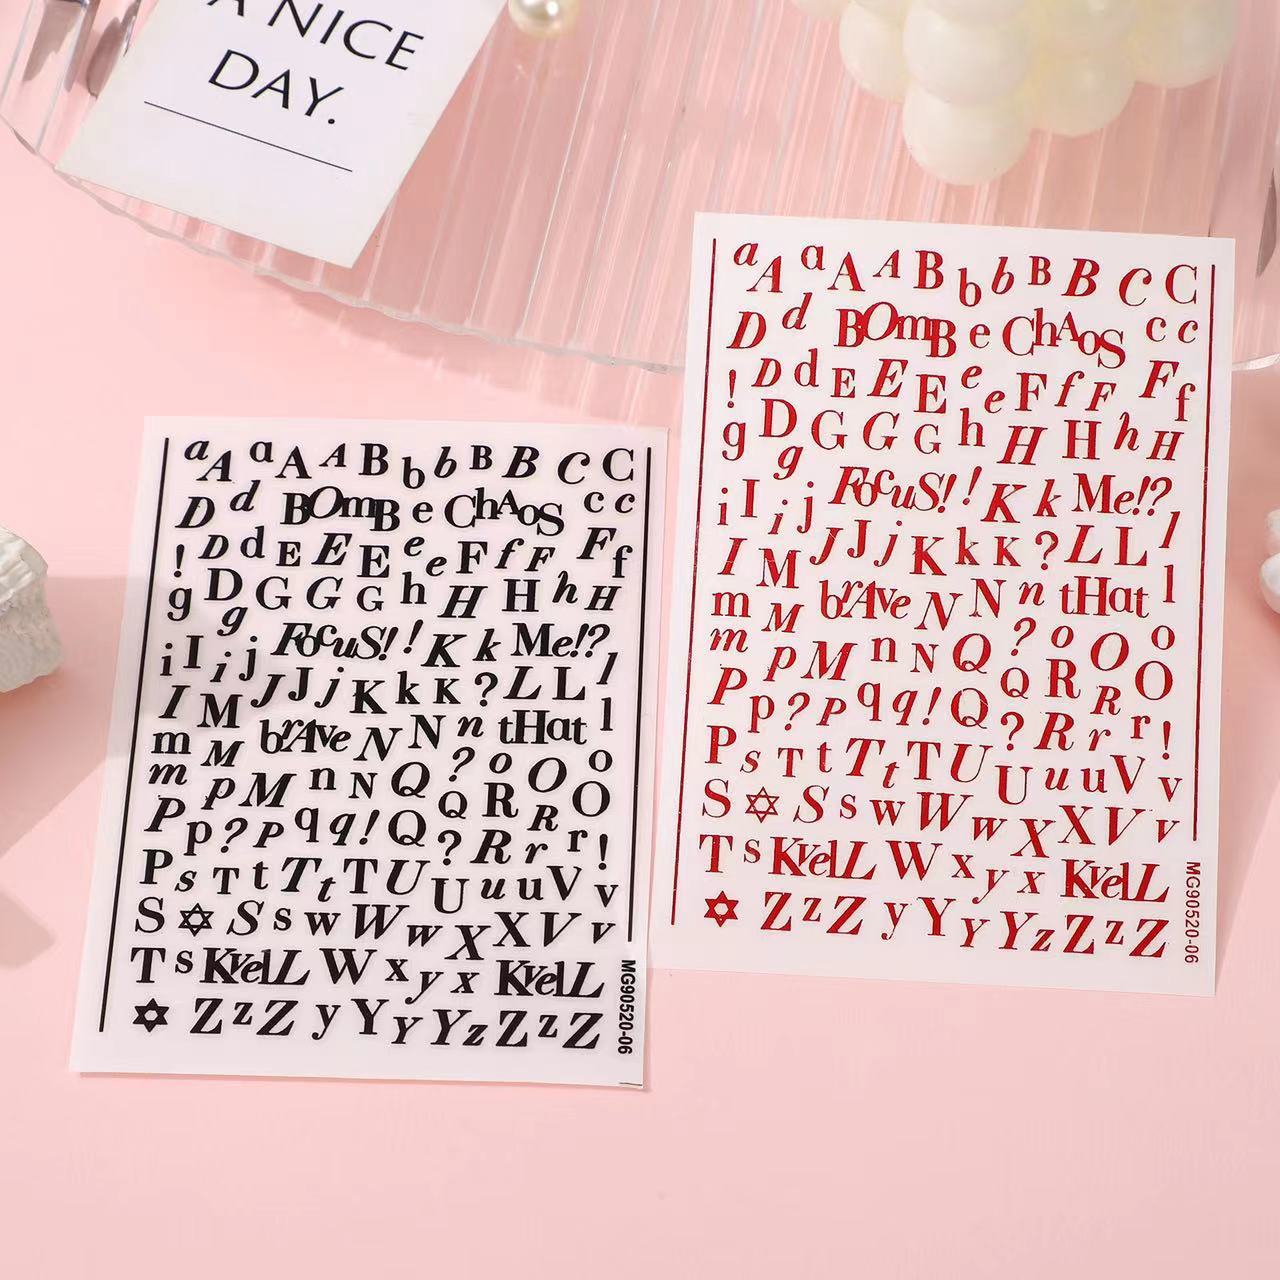 A NICE
DAY.
a A a A A B b b B B C C
D d BOmB e ChAos c c
! D d E E E e e F f F F f
g D g G G G h H H h H
i I i j FocuS! ! K k Me!? l
I M J J j K k K ? L L l
m M brAve N N n tHat
m p M n N Q ? o O o
P p ? P q q ! Q Q R R O
P s T t T t T U ? R r r !
S ✡ S s w W w U u u V v
T s KvelL W x y x X X V v
✡ Z z Z y Y Y Y z Z z Z KvelL
MG90520-06
a A a A A B b b B B C C
D d BOmB e ChAos c c
! D d E E E e e F f F F f
g D g G G G h H H h H
i I i j FocuS! ! K k Me!? l
I M J J j K k K ? L L l
m M brAve N N n tHat
m p M n N Q ? o O o
P p ? P q q ! Q Q R R O
P s T t T t T U ? R r r !
S ✡ S s w W w U u u V v
T s KvelL W x y x X X V v
✡ Z z Z y Y Y Y z Z z Z KvelL
MG90520-06